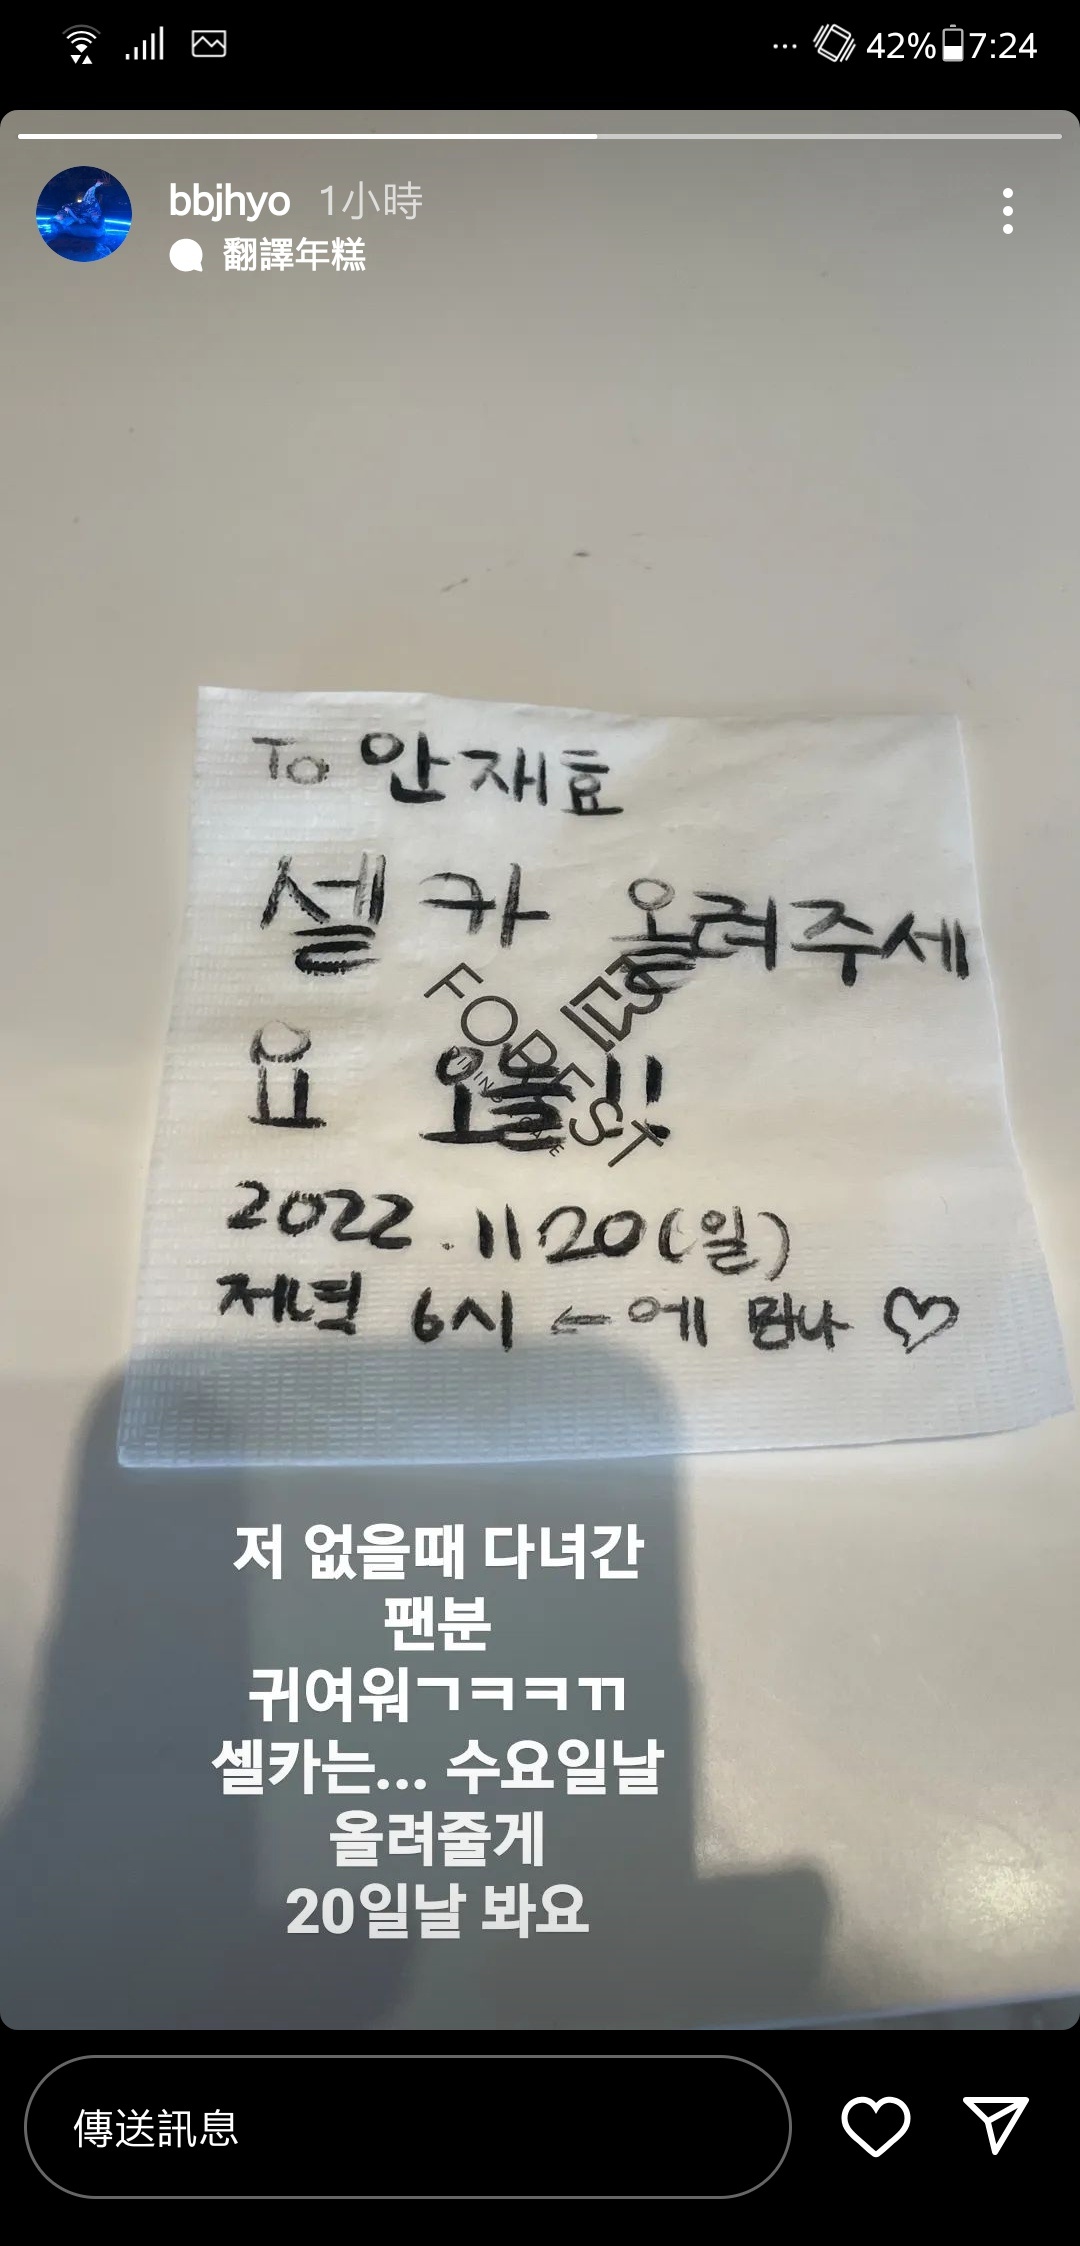 42% 7:24
bbjhyo 1小時
翻譯年糕
To 안재효
셀카 올려주세
요 오늘!!
FOREST
2022.11 20(일)
저녁 6시 ← 에 만나 ♡
저 없을때 다녀간
팬분
귀여워ㄱㅋㅋㄲ
셀카는... 수요일날
올려줄게
20일날 봐요
傳送訊息